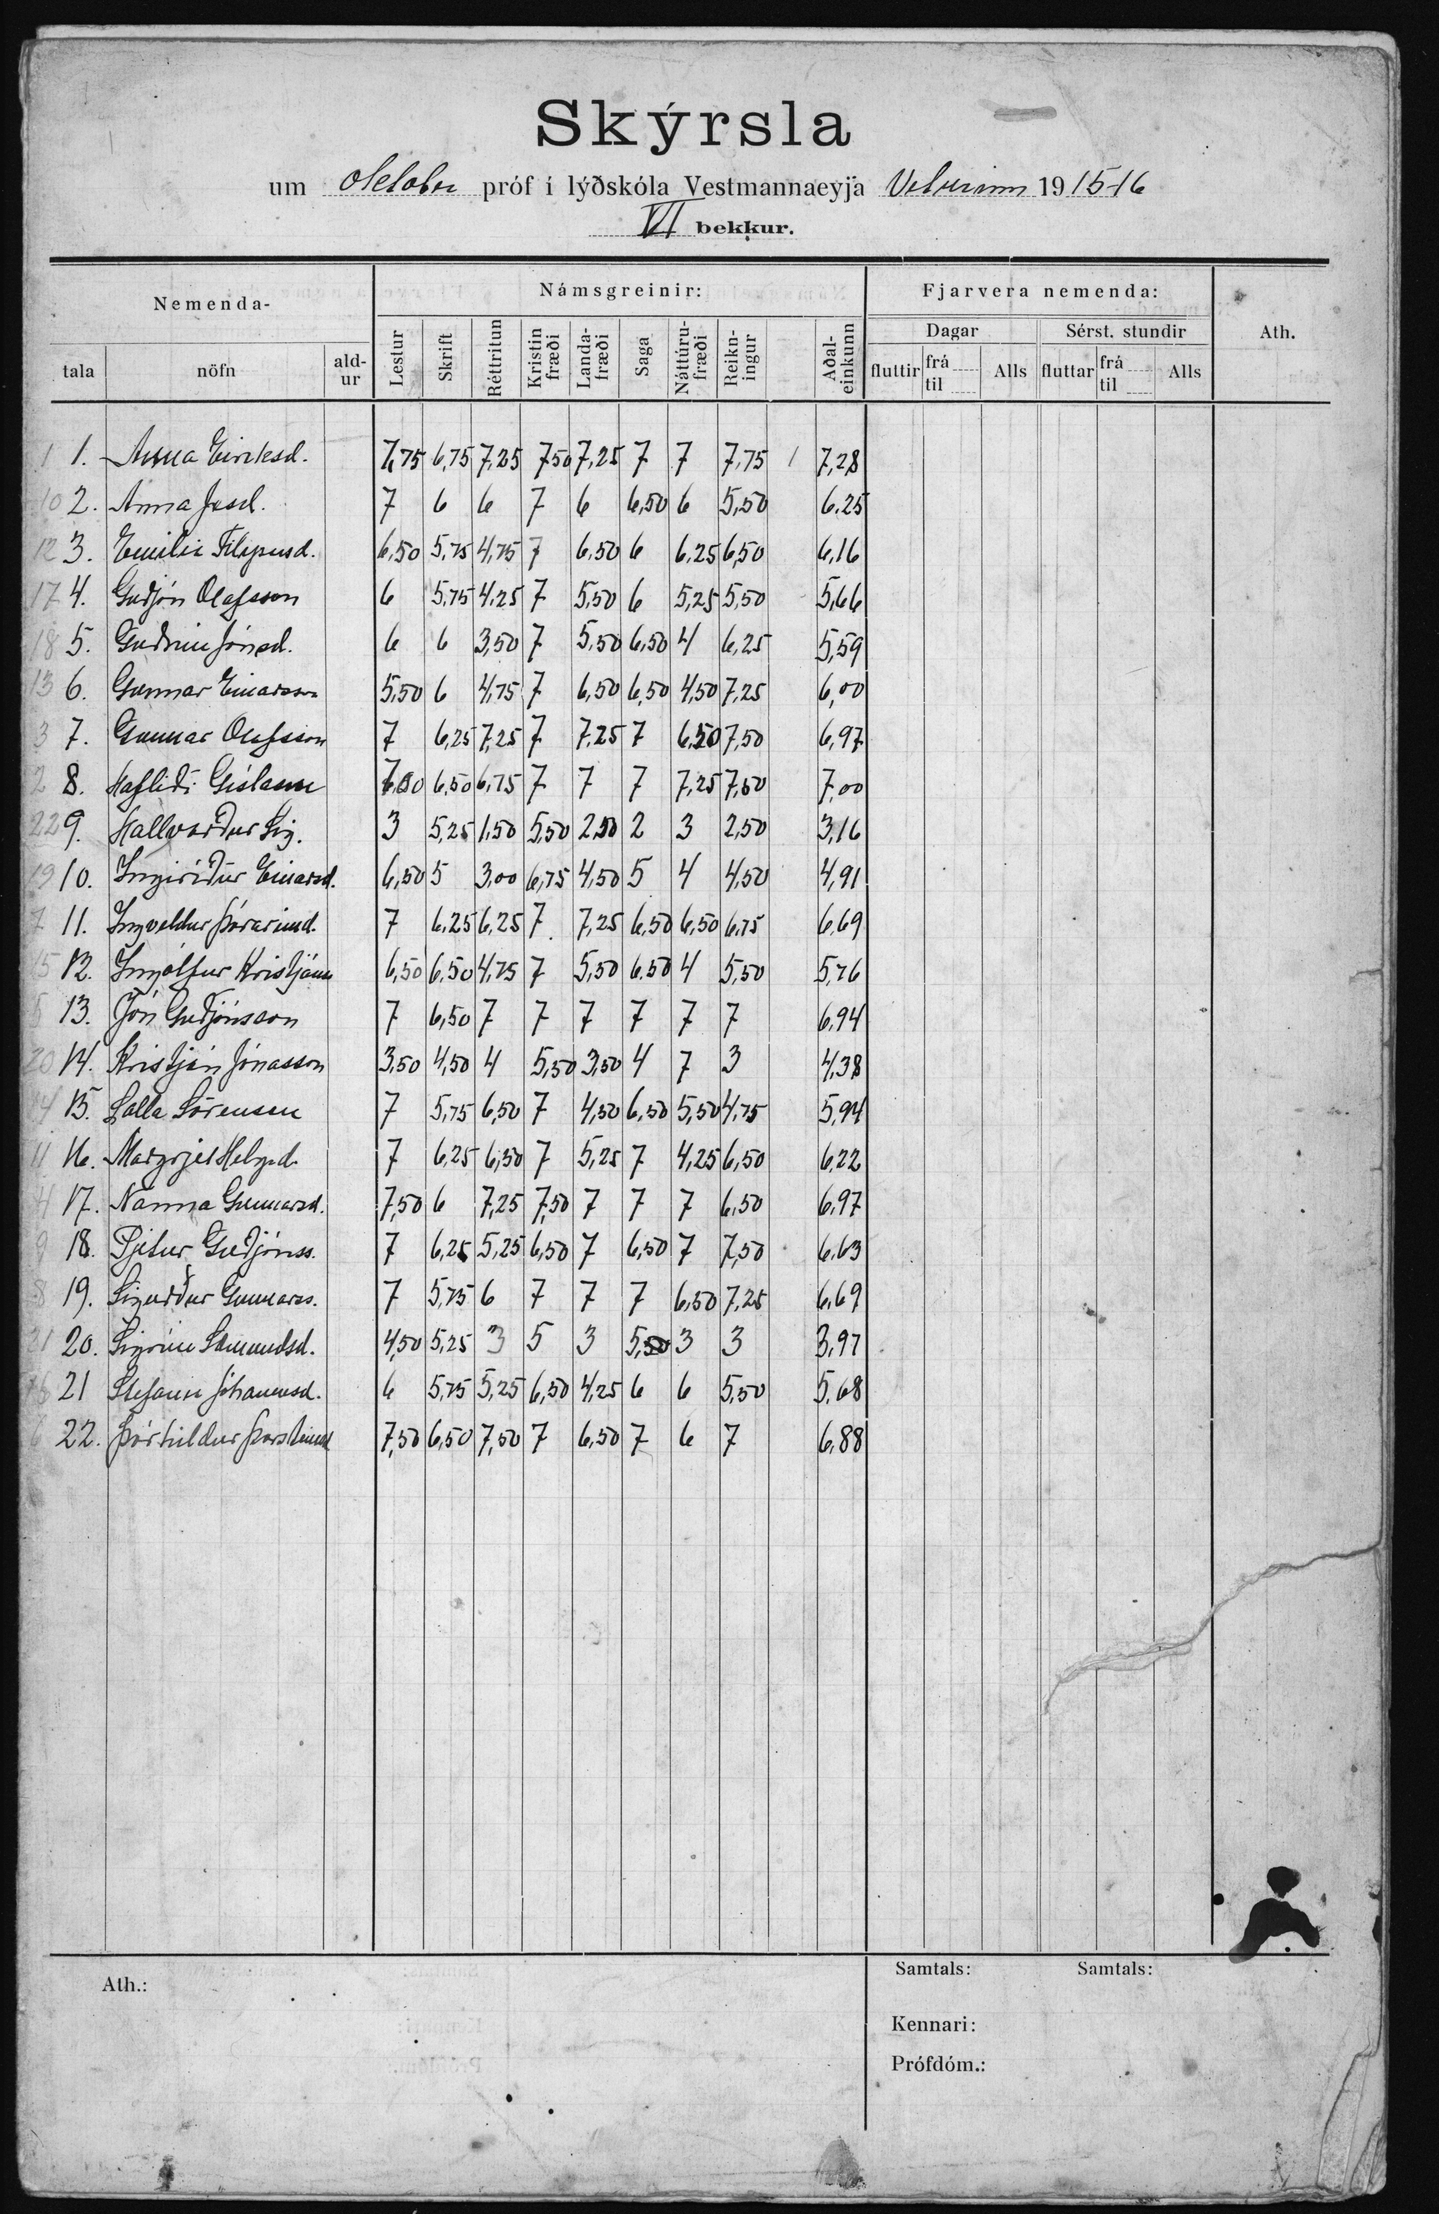 Skýrsla
um október próf í lýðskóla Vestmannaeyja Veturinn 1915-16
VI bekkur.
Nemenda- Námsgreinir: Fjarvera nemenda: Ath.
Dagar Sérst. stundir
tala nöfn ald-ur Lestur Skrift Réttritun Kristin fræði Landa-fræði Saga Náttúru-fræði Reikn-ingur Aðal-einkunn fluttir frá til Alls fluttar frá til Alls
1 1. Anna Eiriksd. 7,75 6,75 7,25 7,50 7,25 7 7 7,75 7,28
10 2. Anna Jesd. 7 6 6 7 6 6,50 6 5,50 6,25
12 3. Emilía Filipusd. 6,50 5,75 4,75 7 6,50 6 6,25 6,50 6,16
17 4. Guðjón Olafsson 6 5,75 4,25 7 5,50 6 5,25 5,50 5,66
18 5. Guðrún Jónsd. 6 6 3,50 7 5,50 6,50 4 6,25 5,59
13 6. Gunnar Einarsson 5,50 6 4,75 7 6,50 6,50 4,50 7,25 6,00
3 7. Gunnar Olafsson 7 6,25 7,25 7 7,25 7 6,50 7,50 6,97
2 8. Hafliði Gíslason 6,50 6,75 7 7 7 7,25 7,50 7,00
22 9. Hallvarður Sig. 3 5,25 1,50 5,50 2,50 2 3 2,50 3,16
19 10. Ingiríður Einarsd. 6,50 5 3,00 6,75 4,50 5 4 4,50 4,91
7 11. Ingveldur Þórarinsd. 7 6,25 6,25 7 7,25 6,50 6,50 6,75 6,69
15 12. Ingólfur Kristjánss 6,50 6,50 4,75 7 5,50 6,50 4 5,50 5,76
5 13. Jón Guðjónsson 7 6,50 7 7 7 7 7 7 6,94
20 14. Kristján Jónasson 3,50 4,50 4 5,50 3,50 4 7 3 4,38
14 15. Lalla Sörensen 7 5,75 6,50 7 4,50 6,50 5,50 4,75 5,94
11 16. Margrjet Helgad. 7 6,25 6,50 7 5,25 7 4,25 6,50 6,22
4 17. Nanna Gunnarsd. 7,50 6 7,25 7,50 7 7 7 6,50 6,97
9 18. Pjetur Guðjónss. 7 6,25 5,25 6,50 7 6,50 7 7,50 6,63
8 19. Sigurður Gunnarss. 7 5,75 6 7 7 7 6,50 7,25 6,69
21 20. Sigrún Sæmundsd. 4,50 5,25 3 5 3 5,50 3 3 3,97
16 21 Stefanía Jóhannsd. 6 5,75 5,25 6,50 4,25 6 6 5,50 5,68
6 22. Þórhildur Þorsteinsd 7,50 6,50 7,50 7 6,50 7 6 7 6,88
Ath.: Samtals: Samtals:
Kennari:
Prófdóm.: